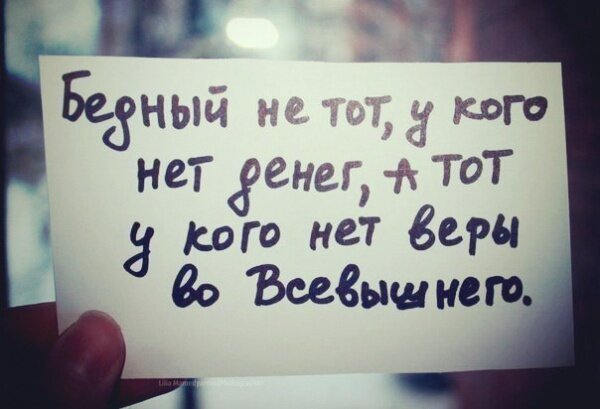 Бедный не тот, у кого
нет денег, А тот
у кого нет веры
во Всевышнего.